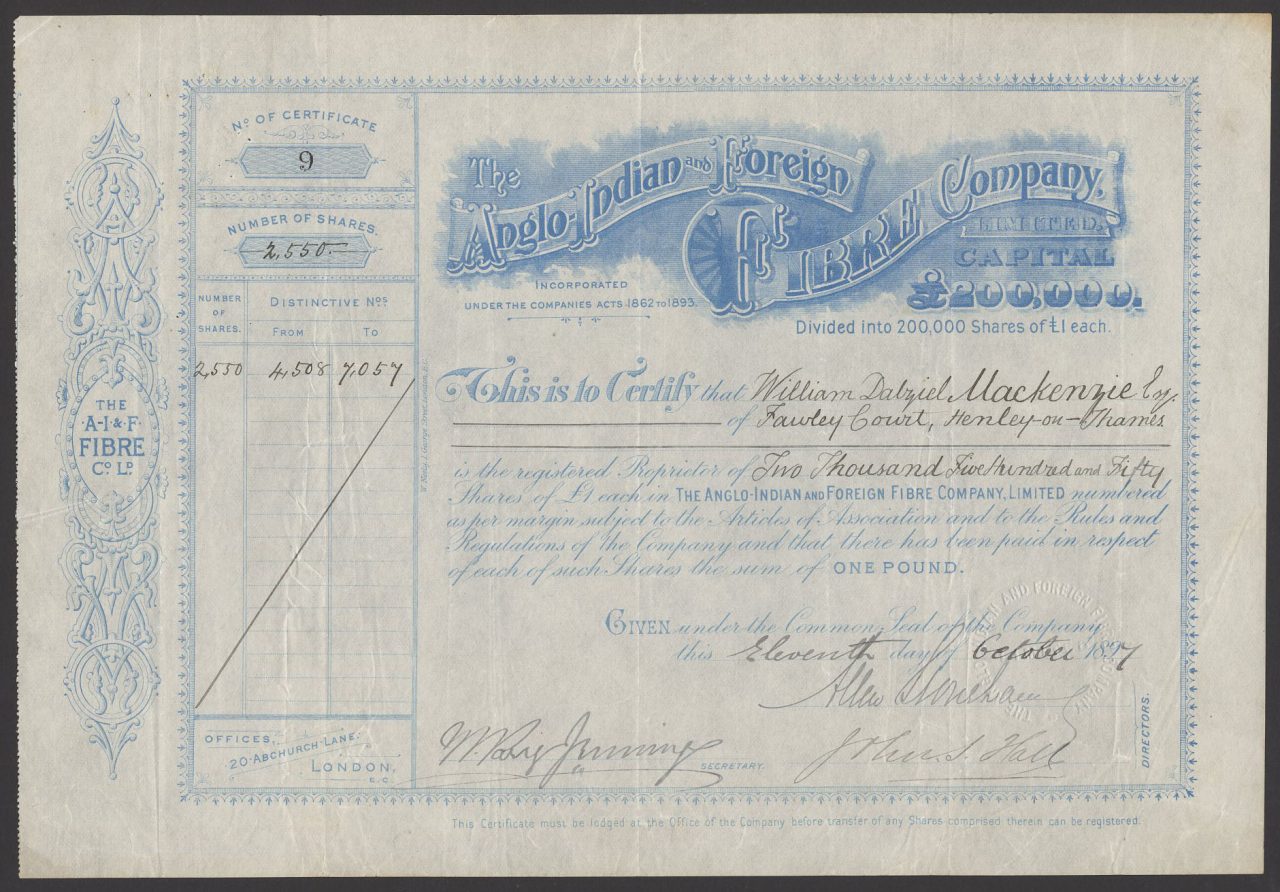 THE
A-I & F
FIBRE
Co. Ld.
No. OF CERTIFICATE
9
NUMBER OF SHARES.
2,550.—
NUMBER OF SHARES.
DISTINCTIVE Nos.
FROM TO
2,550 4,508 7,057
OFFICES,
20·ABCHURCH·LANE·
LONDON,
E.C.
The
Anglo-Indian and Foreign
FIBRE Company,
LIMITED.
CAPITAL
£200,000.
INCORPORATED
UNDER THE COMPANIES ACTS 1862 TO 1893.
Divided into 200,000 Shares of £1 each.
This is to Certify that William Dalziel Mackenzie Esq.
of Fawley Court, Henley-on-Thames
is the registered Proprietor of Two Thousand Five Hundred and Fifty
Shares of £1 each in THE ANGLO-INDIAN AND FOREIGN FIBRE COMPANY, LIMITED numbered
as per margin subject to the Articles of Association and to the Rules and
Regulations of the Company and that there has been paid in respect
of each of such Shares the sum of ONE POUND.
GIVEN under the Common Seal of the Company
this Eleventh day of October 1897
Allen Stoneham
John S. Hall
DIRECTORS.
Jennings
SECRETARY.
This Certificate must be lodged at the Office of the Company before transfer of any Shares comprised therein can be registered.